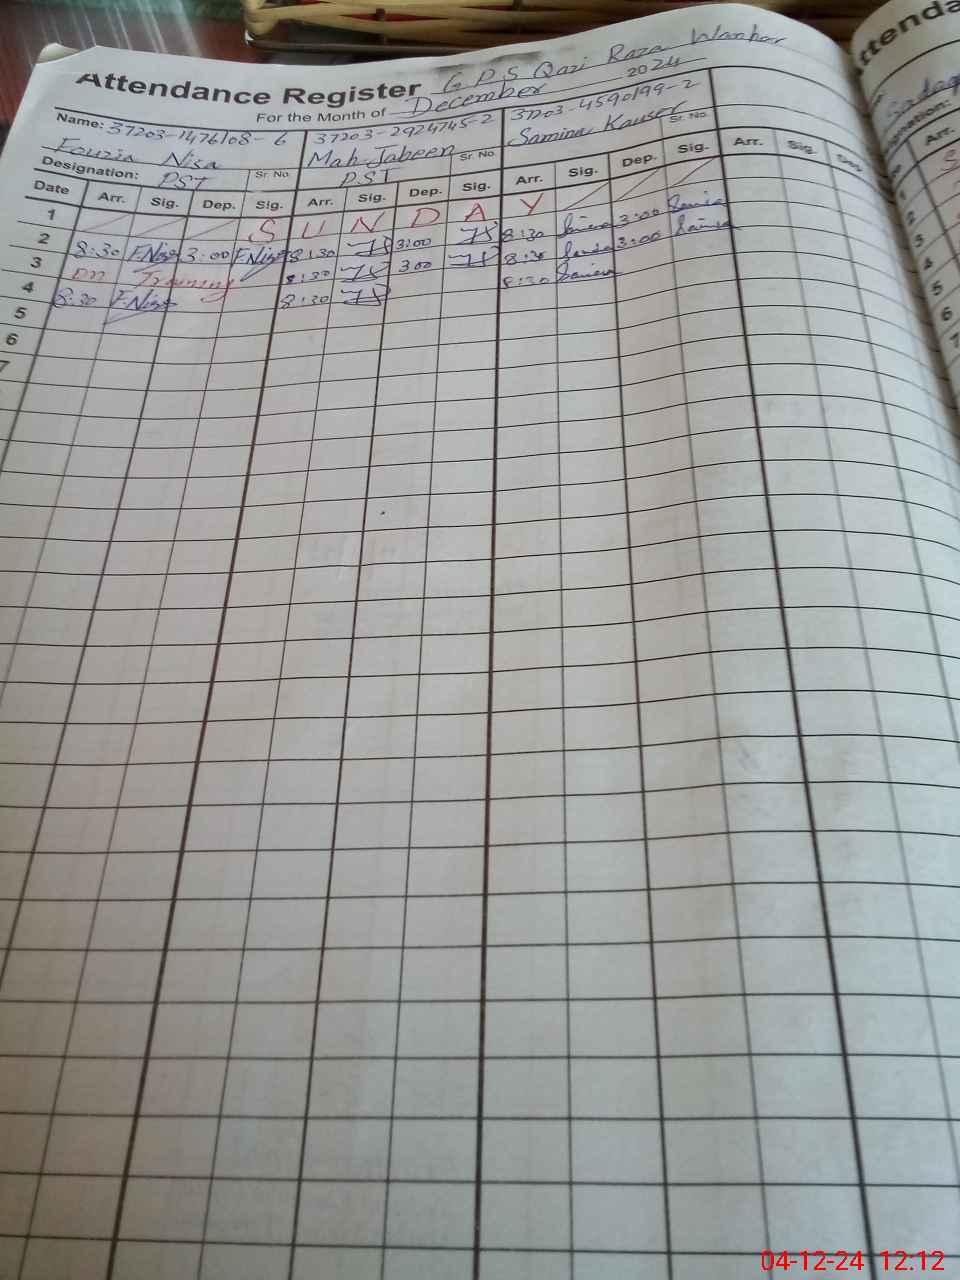 Attendance Register G.P.S Qazi Raza Wanhar
For the Month of December 2024
Name: 37203-1476108-6 37203-2924745-2 37203-4590199-2
Fouzia Nisa Mah Jabeen Samina Kauser
Designation: PST Sr. No. PST Sr. No. Sr. No.
Date Arr. Sig. Dep. Sig. Arr. Sig. Dep. Sig. Arr. Sig. Dep. Sig. Arr. Sig. Dep.
1 S U N D A Y
2 8:30 F.Nisa 3:00 F.Nisa 8:30 3:00 8:30 3:00
3 on Training 8:30 300 8:30 3:00
4 8:30 F.Nisa 8:30 8:30
5
6
7
Attenda
Arr.
1
2
3
4
5
6
7
04-12-24 12:12